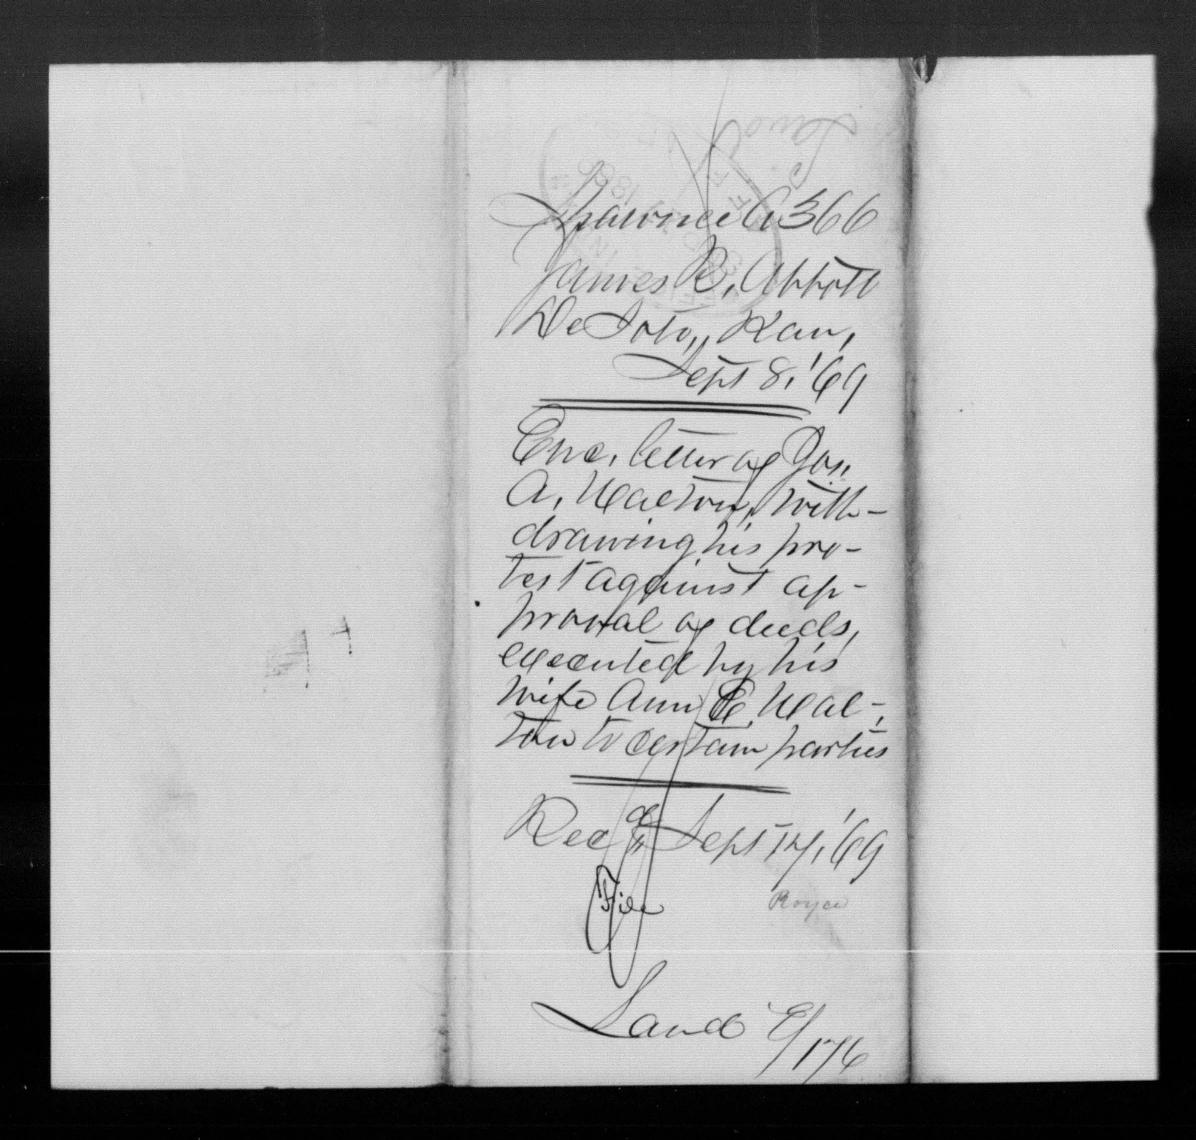 Shawnee A 366
James B. Abbott
De Soto, Kan,
Sept 8, '69
Enc. letter of Jas.
A. Walton, with-
drawing his pro-
test against ap-
proval of deeds,
executed by his
wife Ann E. Wal-
ton to certain parties
Recd Sept 14, '69
File
Royce
Land 9/176